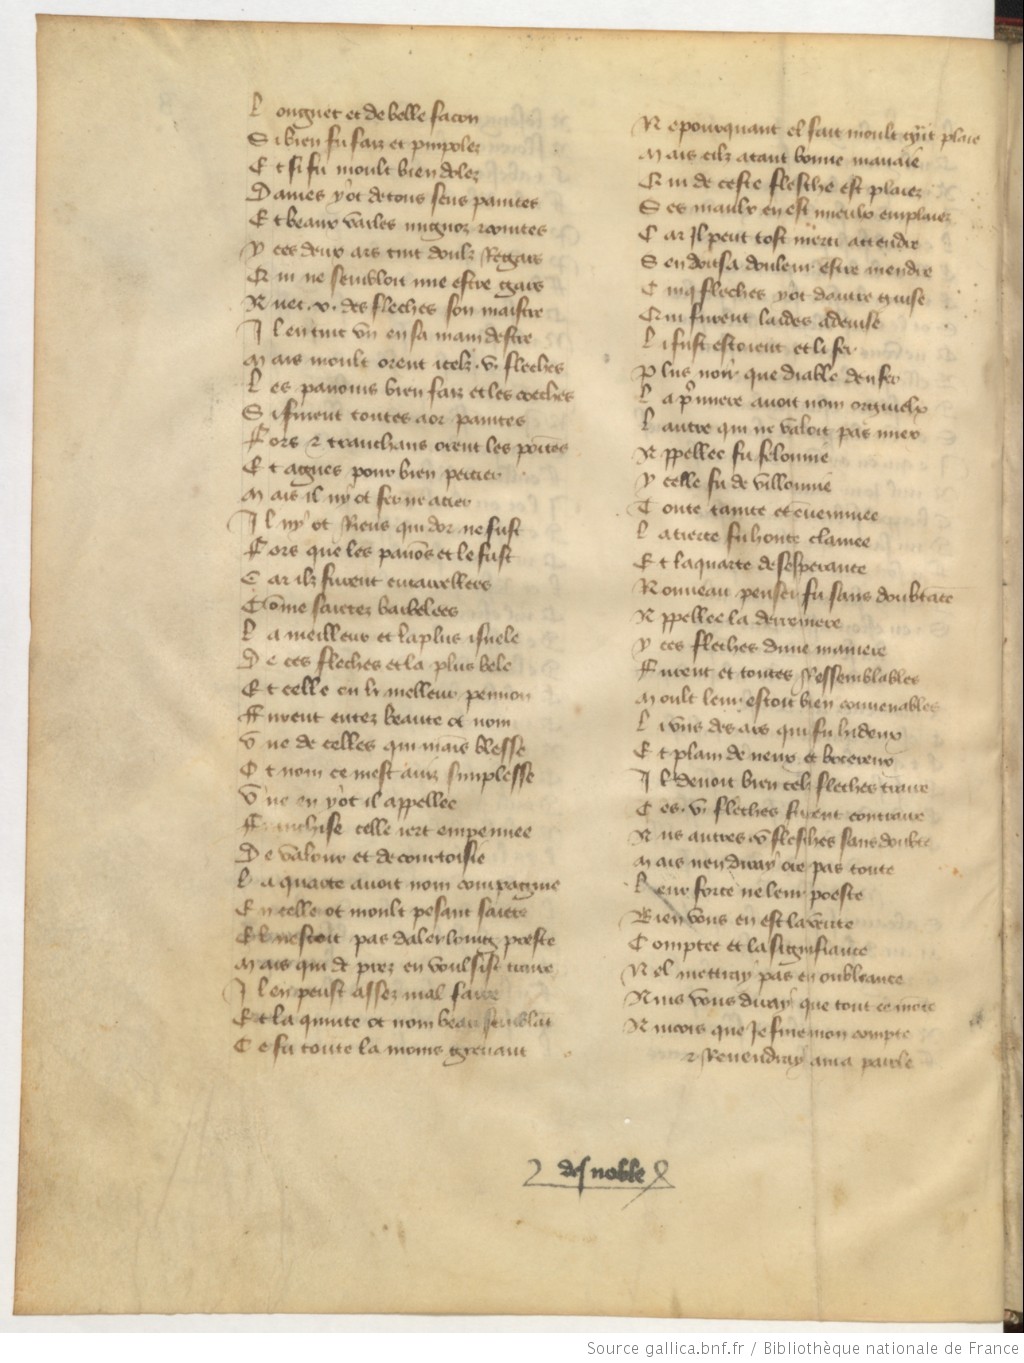 Longuet et de belle facon
Si bien fu faiz et pipolez
Et si fu moult bien dolez
Dames yot de tous sens paintes
Et beaux varles mignoz z cointes
Y ces deux ars tint doulz Regars
Qui ne sembloit mie estre gars
Auec .v. des fleches son maistre
Il en tint vn en sa main destre
Mais moult orent itelz .v. fleches
Les panons bien faiz et les coches
Si furent toutes a or paintes
Fors z tranchans erent les pointes
Et agues pour bien percier
Mais il nyot fer ne acier
Il nyot Riens qui dor ne fust
Fors que les panons et le fust
Car ilz furent encarrellees
Come saietez barbelees
La meilleur et la plus isnele
De ces fleches et la plus bele
Et celle ou li meilleur pennon
Furent entez beaute ot nom
Vne de celles qui mains blesse
Ot nom ce mest auiz simplesse
Vne en yot il appellee
Franchise celle iert empennee
De valour et de courtoisie
La quarte auoit nom compagnie
En celle ot moult pesant saiete
El nestoit pas daler loing preste
Mais qui de prez en voulsist traire
Il en peust assez mal faire
Et la quinte ot nom beau semblat
Ce fu toute la moins greuant
Nepourquant el fait moult grant plaie
Mais cilz atant bonne manaie
Qui de ceste flesche est plaiez
Ses maulx en est mieulx emplaiez
Car Il peut tost merci attendre
Sen doit sa douleur estre mendre
Cinq fleches yot dautre guise
Qui furent laides a deuise
Li fust estoient et li fer
Plus noir que diable denfer
La premiere auoit nom orgueulx
Lautre qui ne valoit pas mieux
Appellee fu felonnie
Ycelle fu de villonnie
Toute tainte et enuenimee
La tierce fu honte clamee
Et la quarte desesperance
Nouueau penser fu sans doubtace
Appellee la derreniere
Y ces fleches dune maniere
Furent et toutes Ressemblables
Moult leur estoit bien conuenables
Li vns des ars qui fu hideux
Et plain de neux et bocereux
Il deuoit bien telz fleches traire
Ces .v. fleches furent contraire
Aus autres .v. flesches sans doubte
Mais nen diray ore pas toute
Leur force ne leur poeste
Bien vous en est la verite
Comptee et la signifiance
Nel mettray pas en oubliance
Ains vous diray que tout ce monte
Aincois que Je fine mon compte
z Reuendray a ma parole
des noble
Source gallica.bnf.fr / Bibliothèque nationale de France